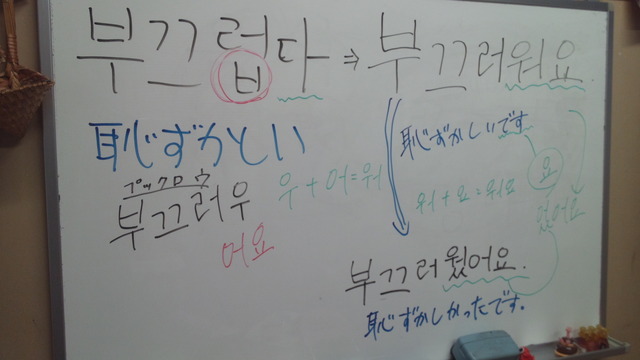 부끄럽다 ⇒ 부끄러워요.
ㅂ
恥ずかとい
恥ずかしいです
プックロウ
부끄러우
우+어=워
어요
워+요=워요
요
있어요
부끄러웠어요.
恥ずかしかったです.